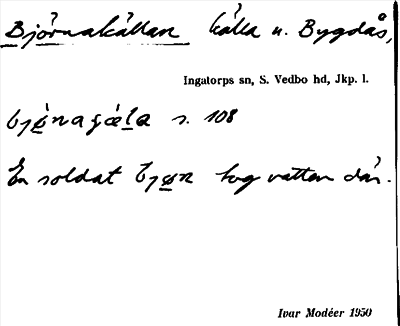 Björnakällan källa u. Bygdås,
Ingatorps sn, S. Vedbo hd, Jkp. l.
s. 108
En soldat Bjön tog vatten där.
Ivar Modéer 1950